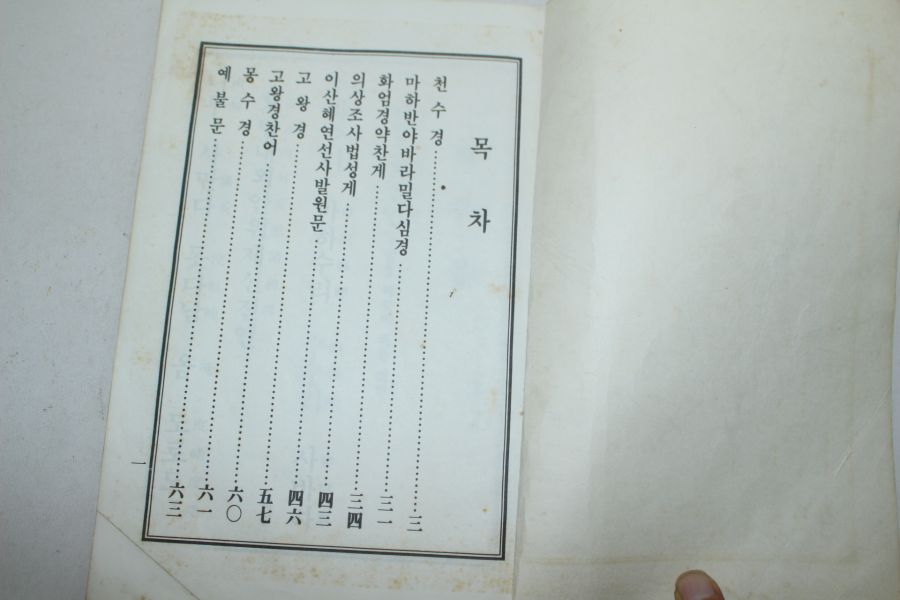 목차
천수경 三
마하반야바라밀다심경 三一
화엄경약찬게 三四
의상조사법성게 四三
이산혜연선사발원문 四六
고왕경 五七
고왕경찬어 六〇
몽수경 六一
예불문 六三
一